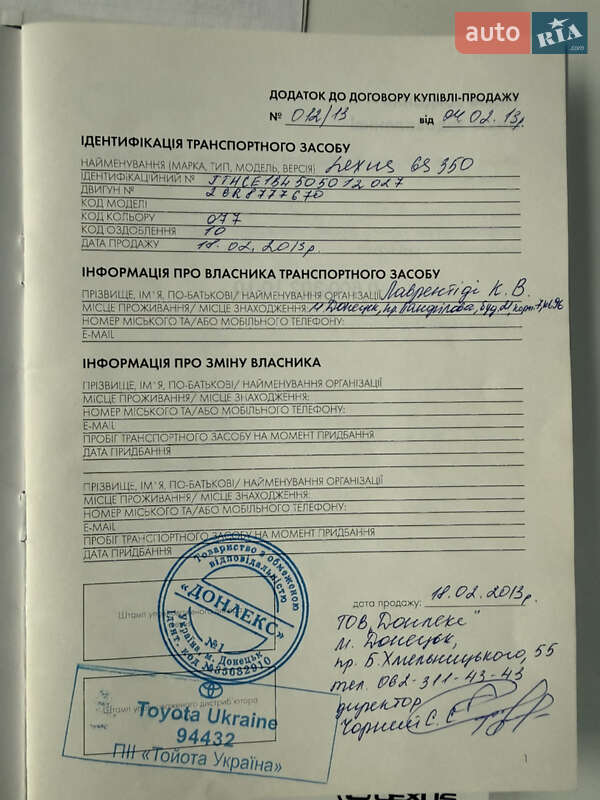 auto RIA .com
ДОДАТОК ДО ДОГОВОРУ КУПІВЛІ-ПРОДАЖУ
№ 012/13 від 04.02.13р
ІДЕНТИФІКАЦІЯ ТРАНСПОРТНОГО ЗАСОБУ
НАЙМЕНУВАННЯ (МАРКА, ТИП, МОДЕЛЬ, ВЕРСІЯ) Lexus GS 350
ІДЕНТИФІКАЦІЙНИЙ № JTHCE1B4505012027
ДВИГУН № 2GR8777670
КОД МОДЕЛІ
КОД КОЛЬОРУ 077
КОД ОЗДОБЛЕННЯ 10
ДАТА ПРОДАЖУ 18.02.2013р.
ІНФОРМАЦІЯ ПРО ВЛАСНИКА ТРАНСПОРТНОГО ЗАСОБУ
ПРІЗВИЩЕ, ІМ'Я, ПО-БАТЬКОВІ/ НАЙМЕНУВАННЯ ОРГАНІЗАЦІЇ Лаврентіді К. В.
МІСЦЕ ПРОЖИВАННЯ/ МІСЦЕ ЗНАХОДЖЕННЯ: м Донецьк, пр. Панфілова, буд. 21,
НОМЕР МІСЬКОГО ТА/АБО МОБІЛЬНОГО ТЕЛЕФОНУ:
E-MAIL
ІНФОРМАЦІЯ ПРО ЗМІНУ ВЛАСНИКА
ПРІЗВИЩЕ, ІМ'Я, ПО-БАТЬКОВІ/ НАЙМЕНУВАННЯ ОРГАНІЗАЦІЇ
МІСЦЕ ПРОЖИВАННЯ/ МІСЦЕ ЗНАХОДЖЕННЯ:
НОМЕР МІСЬКОГО ТА/АБО МОБІЛЬНОГО ТЕЛЕФОНУ:
E-MAIL
ПРОБІГ ТРАНСПОРТНОГО ЗАСОБУ НА МОМЕНТ ПРИДБАННЯ
ДАТА ПРИДБАННЯ
ПРІЗВИЩЕ, ІМ'Я, ПО-БАТЬКОВІ/ НАЙМЕНУВАННЯ ОРГАНІЗАЦІЇ
МІСЦЕ ПРОЖИВАННЯ/ МІСЦЕ ЗНАХОДЖЕННЯ:
НОМЕР МІСЬКОГО ТА/АБО МОБІЛЬНОГО ТЕЛЕФОНУ:
E-MAIL
ПРОБІГ ТРАНСПОРТНОГО ЗАСОБУ НА МОМЕНТ ПРИДБАННЯ
ДАТА ПРИДБАННЯ
Товариство з обмеженою
відповідальністю
«ДОНЛЕКС»
№1
Україна, м. Донецьк
Ідент. код №35682910
Штамп
дата продажу: 18.02.2013р.
ТОВ "Донлекс"
м. Донецьк,
пр. Б. Хмельницького, 55
тел. 062-311-43-43
директор
С. Є
Штамп уповноваженого дистриб'ютора
Toyota Ukraine
94432
ПІІ «Тойота Україна»
1
LEXUS